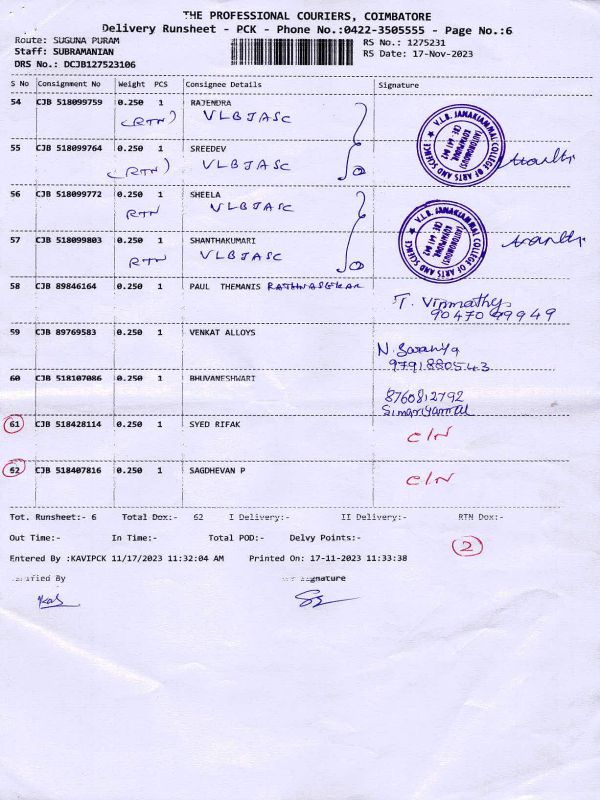 THE PROFESSIONAL COURIERS, COIMBATORE
Delivery Runsheet - PCK - Phone No.:0422-3505555 - Page No.:6
Route: SUGUNA PURAM RS No.: 1275231
Staff: SUBRAMANIAN RS Date: 17-Nov-2023
DRS No.: DCJB127523106
S No Consignment No Weight PCS Consignee Details Signature
54 CJB 518099759 0.250 1 RAJENDRA
(RTN) VLBJASC
V.L.B. JANAKIAMMAL COLLEGE OF ARTS AND SCIENCE
(AUTONOMOUS)
KOVAIPUDUR,
CBE - 641 042
55 CJB 518099764 0.250 1 SREEDEV
(RTN) VLBJASC
56 CJB 518099772 0.250 1 SHEELA
RTN VLBJASC
V.L.B. JANAKIAMMAL COLLEGE OF ARTS AND SCIENCE
(AUTONOMOUS)
KOVAIPUDUR,
CBE - 641 042
57 CJB 518099803 0.250 1 SHANTHAKUMARI
RTN VLBJASC
58 CJB 89846164 0.250 1 PAUL THEMANIS
T.
59 CJB 89769583 0.250 1 VENKAT ALLOYS
N. Saranya
9791880543
60 CJB 518107086 0.250 1 BHUVANESHWARI
8760812792
61 CJB 518428114 0.250 1 SYED RIFAK
C/N
62 CJB 518407816 0.250 1 SAGDHEVAN P
C/N
Tot. Runsheet:- 6 Total Dox:- 62 I Delivery:- II Delivery:- RTN Dox:-
Out Time:- In Time:- Total POD:- Delvy Points:-
2
Entered By :KAVIPCK 11/17/2023 11:32:04 AM Printed On: 17-11-2023 11:33:38
By Signature